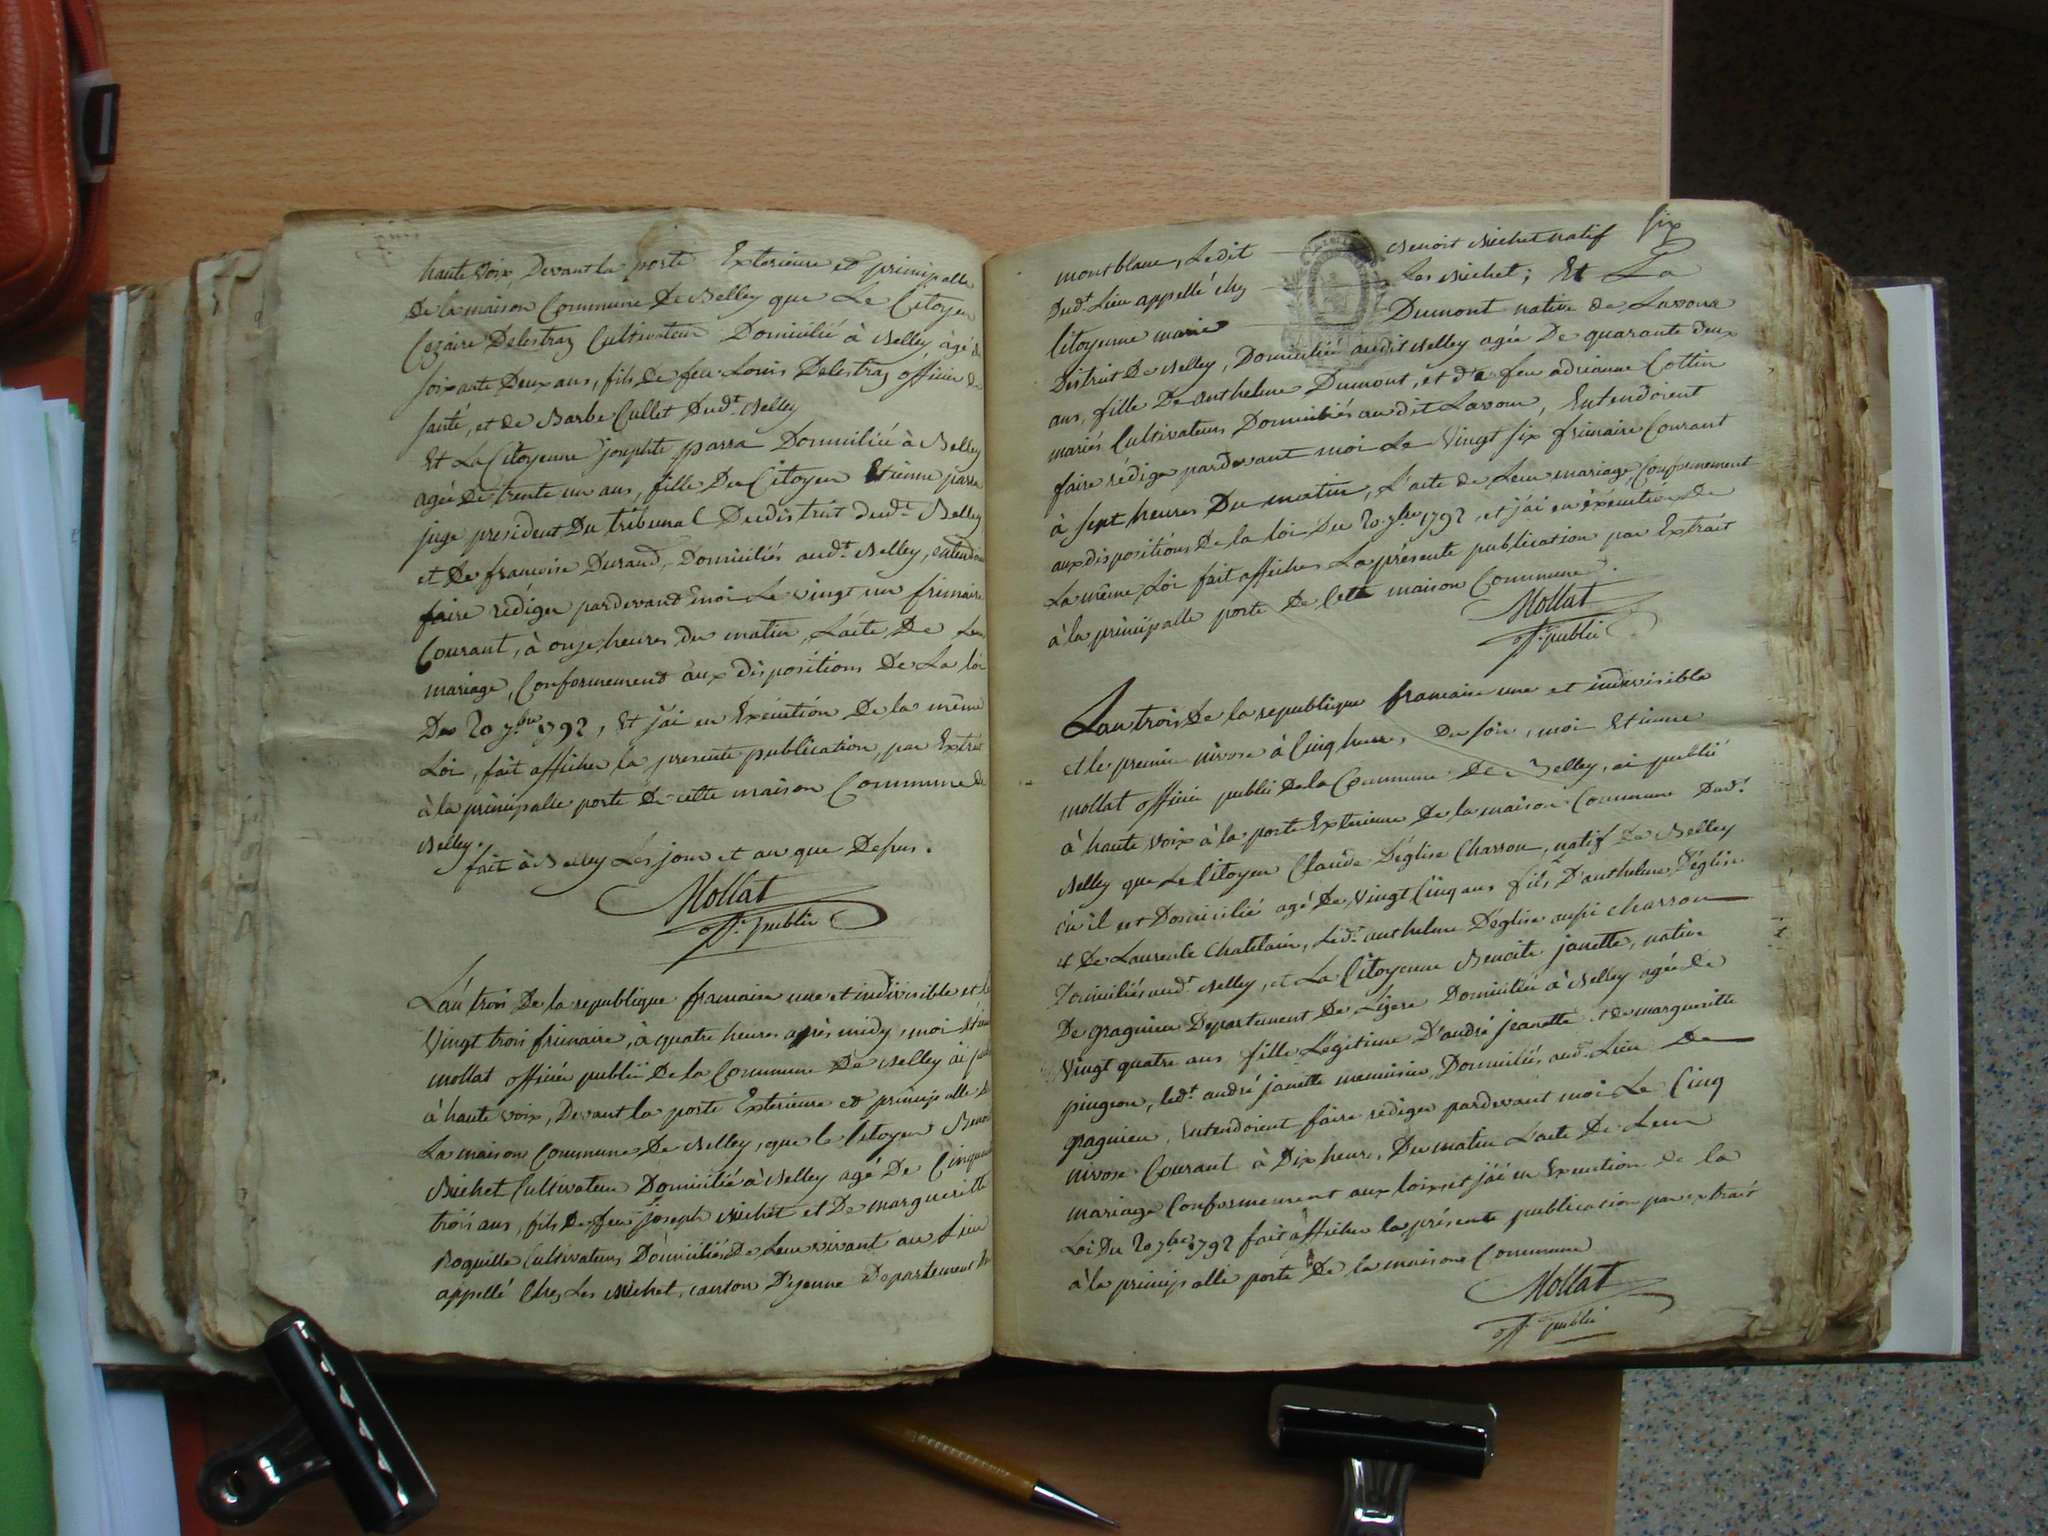 haute voix, Devant la porte Exterieure et principalle
De la maison Commune De Belley que Le Citoyen
Cezaire Delestraz Cultivateur Domicilié à Belley âgé de
soixante Deux ans, fils de feu Louis Delestraz officier de
santé, et de Barbe Cullet Dudt. Belley
Et La Citoyenne josephte parra Domiciliée à Belley
agée De trente un ans, fille Du Citoyen Etienne parra
juge president Du tribunal Dudistrict dudt. Belley
et De francoise Durand, Domiciliés audt. Belley, entendoient
faire rédiger pardevant moi Le vingt un frimaire
Courant, à onze heures du matin, L'acte De Leur
mariage, Conformement aux dispositions De La loi
Du 20 7bre 1792, Et j'ai en Execution De la même
Loi, fait afficher la presente publication, par Extrait
à la principalle porte De cette maison Commune de
Belley.
fait à Belley Les jour et an que Depus.
Mollat
off. public
L'an trois De la republique francaise une et indivisible et le
Vingt trois frimaire, à quatre heures après midy, moi Etienne
mollat officié public De la Commune De Belley ai publié
à haute voix, Devant la porte Exterieure et principalle de
La maison Commune De Belley, que le Citoyen Benoit
Michet Cultivateur Domicilié à Belley agé De Cinquante
trois ans, fils De feu joseph Michet et De margueritte
Roquille Cultivateurs Domiciliés De Leur vivant au Lieu
appellé Chez Les Michet, canton D'yenne Departement du
six
montblanc, Ledit Benoit Michet natif
Dudt. Lieu appellé chez Les Michet; Et La
Citoyenne marie Dumont native de Lavour
District De Belley, Domiciliée audit Belley agée De quarante deux
ans, fille De anthelme Dumont, et de feu adrianne Cottin
mariés Cultivateurs Domiciliés au dit Lavour, Entendoient
faire rédiger pardevant moi Le Vingt six frimaire Courant
à sept heures Du matin, L'acte de Leur mariage, Conformement
aux dispositions De la loi Du 20 7bre 1792, et j'ai en éxécution De
La même Loi fait afficher La présente publication par Extrait
à la principalle porte De Cette maison Commune.
Mollat
off. public
L'an trois De la republique francaise une et indivisible
et le premier nivose à Cinq heures Du soir, moi Etienne
mollat officié public De la Commune De Belley, ai publié
à haute voix à la porte Exterieure De la maison Commune Dudt.
Belley que Le Citoyen Claude Déglise Charron, natif De Belley
où il est Domicilié agé De Vingt Cinq ans fils D'anthelme Déglise
et De Laurente Chatelain, Ledt. anthelme Déglise aussi charron
Domiciliés audt. Belley, et La Citoyenne Benoite janette, native
De gragnieu Departement De Lizere Domiciliée à Belley agée de
Vingt quatre ans fille Légitime D'andré jeanette et de margueritte
pingeon, ledt. andré janette menuisier, Domiciliés audt. Lieu De
gragnieu, Entendoient faire rédiger pardevant moi Le Cinq
nivose Courant à Dix heures Du matin L'acte De Leur
mariage Conformement aux loix et j'ai en Execution de la
Loi Du 20 7bre 1792 fait afficher la présente publication par extrait
à la principalle porte De la maison Commune
Mollat
off. public